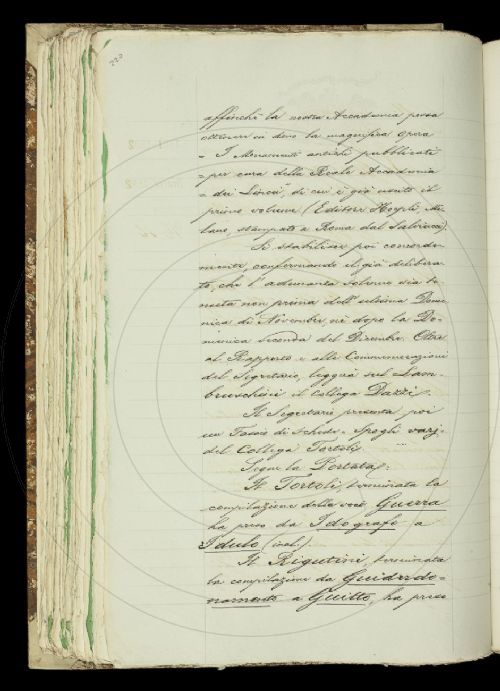 affinchè la nostra Accademia possa
ottenere in dono la magnifica opera
= I Monumenti antichi pubblicati
= per cura della Reale Accademia
= dei Lincei", di cui è già uscito il
primo volume (Editore Hoepli, Mi-
lano, stampato a Roma dal Salviucci).
Si stabilisce poi concorde-
mente, confermando il già delibera-
to, che l'adunanza solenne sia te-
nuta non prima dell'ultima Dome-
nica di Novembre, nè dopo la Do-
menica seconda del Dicembre. Oltre
al Rapporto e alle Commemorazioni
del Segretario, leggerà sul Lam-
bruschini il collega Dazzi.
Il Segretario presenta poi
un Fascio di schede - Spogli varj
del Collega Tortoli.
Segue la Tortata:
Il Tortoli, terminata la
compilazione della voce Guerra
ha preso da Idografo a
Idulo (incl.).
Il Rigutini, terminata
la compilazione da Guiderdo=
namento a Guitto, ha preso